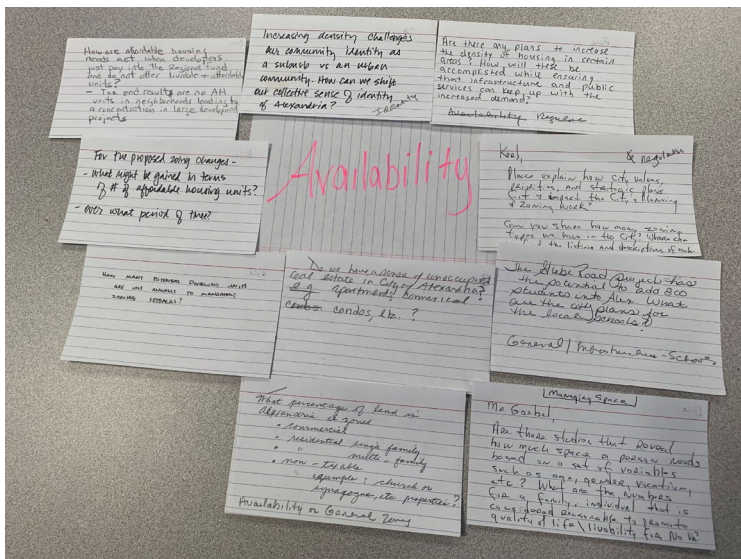 How are affordable housing
needs met when developers
just pay into the Regional Fund
and do not offer livable + affordable
units?
- The end results are no AH
units in neighborhoods leading to
a concentration in large development
projects
Increasing density challenges
our community identity as
a suburb vs an urban
community. How can we shift
our collective sense of identity
of Alexandria?
Identity
Are there any plans to increase
the density of housing in certain
areas? How will these be
accomplished while ensuring
that infrastructure and public
services can keep up with the
increased demand?
Availability Regular
For the proposed zoning changes -
- What might be gained in terms
of # of affordable housing units?
- over what period of time?
Availability
& regulation
Karl,
Please explain how City values,
priorities, and strategic plans
fit & impact the City's Planning
& Zoning work?
Can you share how many zoning
types we have in the City? Where can
the listing and descriptions of each.
How many potential dwelling units
are lost almost to mandatory
zoning setbacks?
Do we have a sense of unoccupied
real estate in City of Alexandria?
e.g. apartments, commercial
condos, etc. ?
The Glebe Road project has
the potential to add 200
students into Alex. What
are the city plans for
the local schools?
General / Infrastructure - Schools
What percentage of land in
Alexandria is zoned
• commercial
• residential single family
• " multi-family
• non-taxable
example: church or
synagogue, etc. properties?
Availability or General Zoning
Managing Space
Mr Goebel,
Are there studies that reveal
how much space a person needs
based on a set of variables
such as age, gender, vocation,
etc? What are the numbers
for a family, individual that is
considered reasonable to promote
quality of life \ livability for No Va?